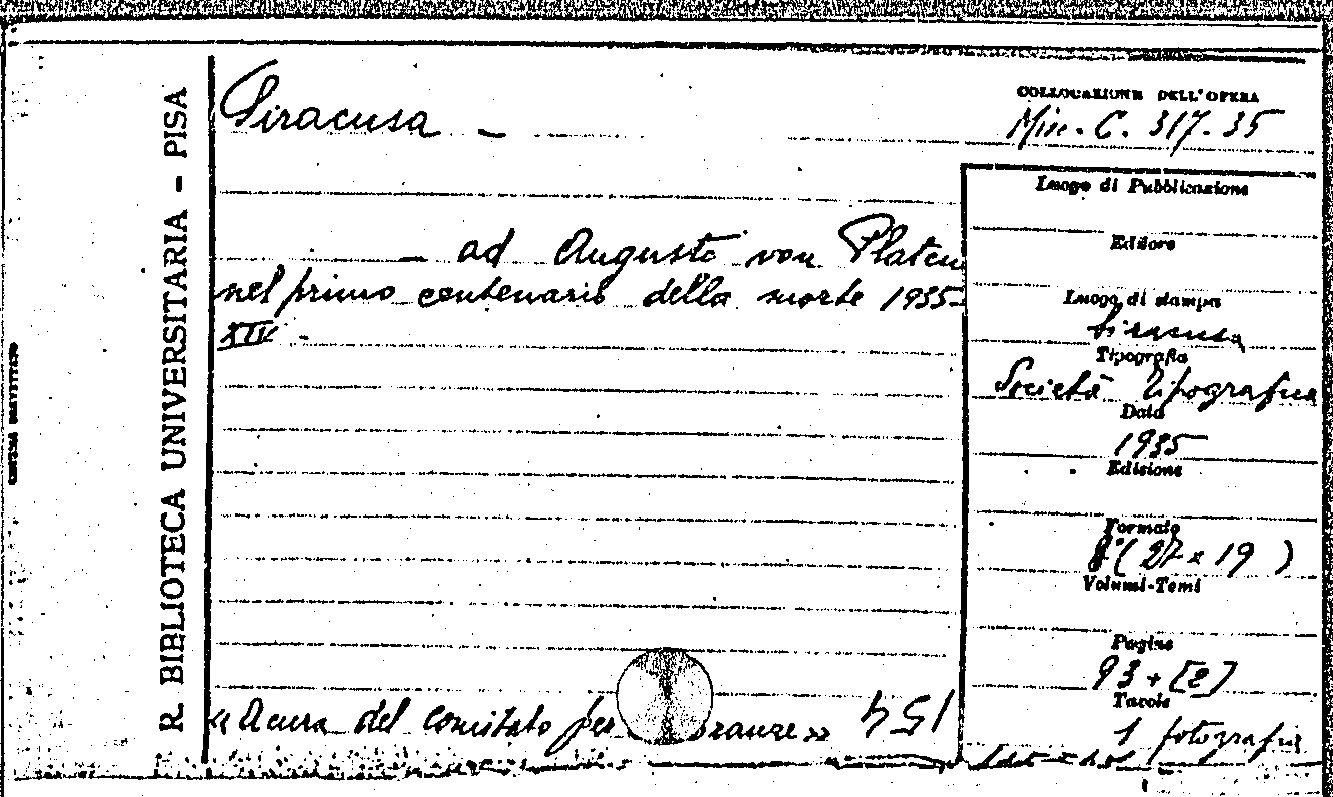 R. BIBLIOTECA UNIVERSITARIA - PISA
Siracusa -
COLLOCAZIONE DELL'OPERA
Misc. C. 317.35
- ad Augusto von Platen
nel primo centenario della morte 1935-
XIV -
Luogo di Pubblicazione
Editore
Luogo di stampa
Siracusa
Tipografia
Società Tipografica
Data
1935
Edizione
Formato
8°(27 x 19)
Volumi-Tomi
Pagine
93 + [2]
Tavole
1 fotografia
«A cura del comitato per oranze» 154